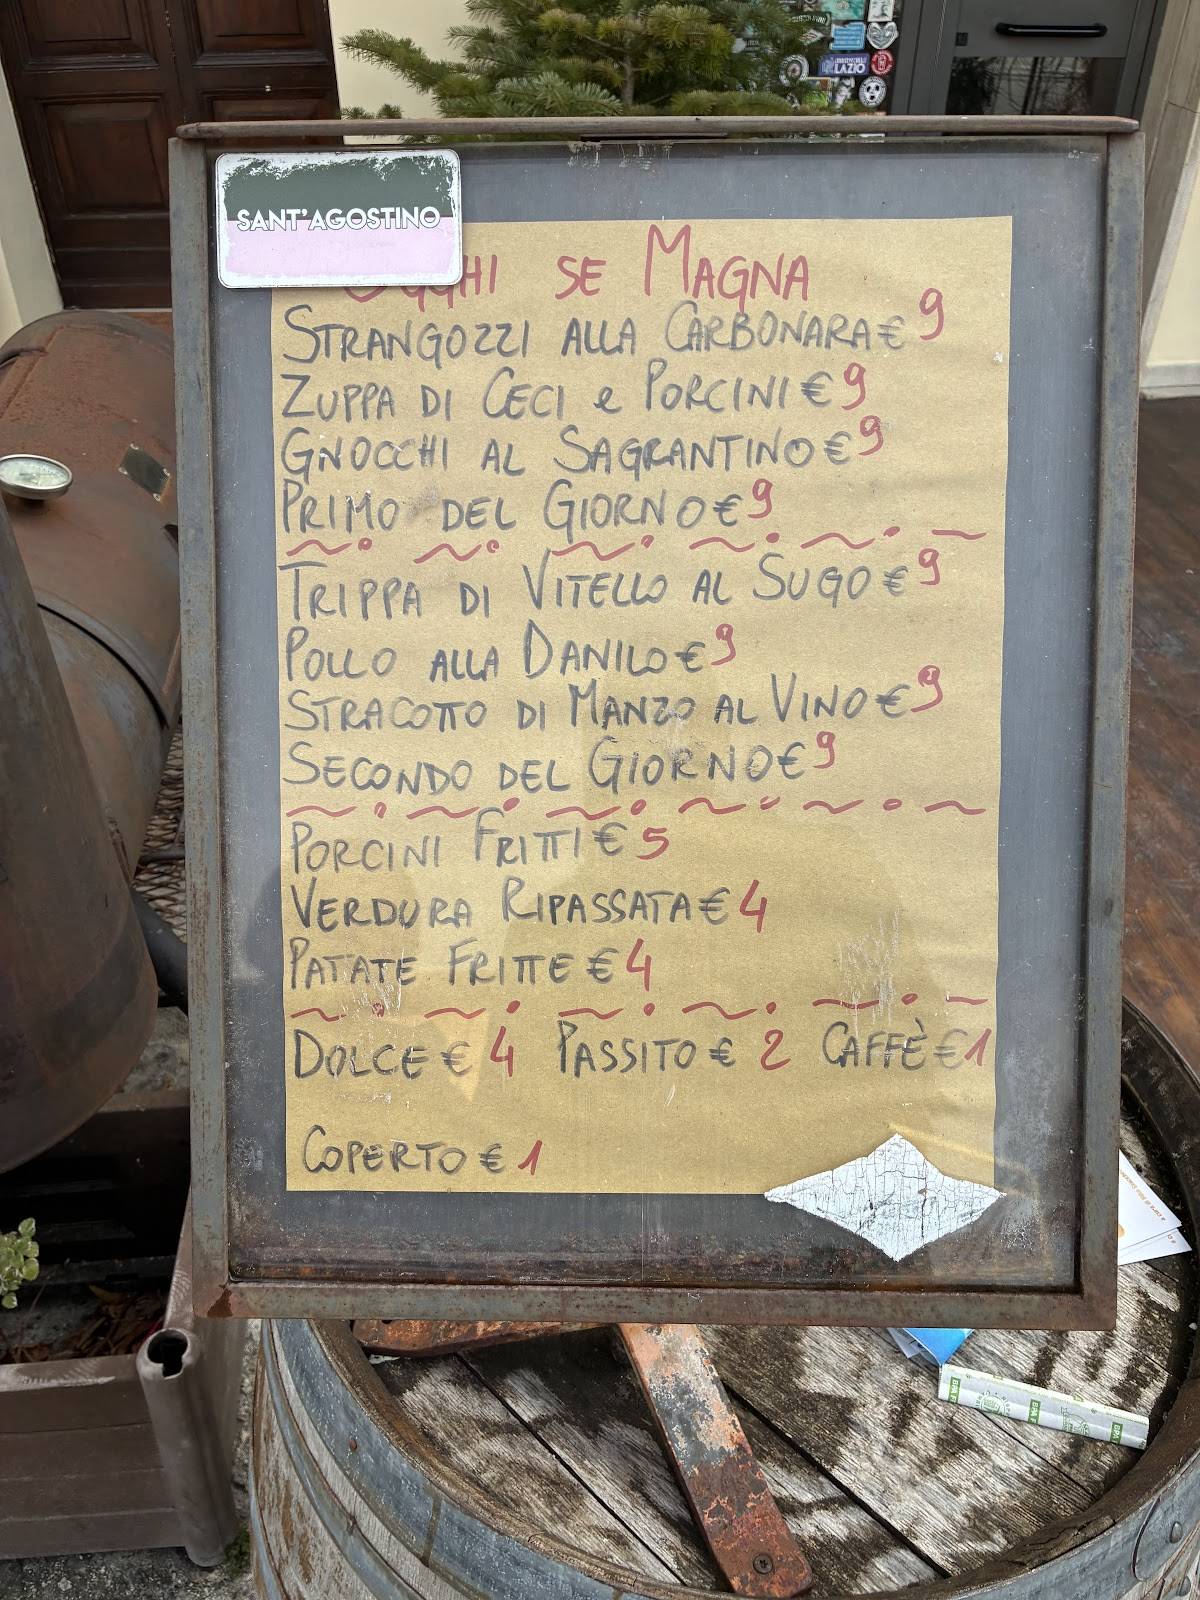 LAZIO
SANT'AGOSTINO
OGGHI SE MAGNA
STRANGOZZI ALLA CARBONARA € 9
ZUPPA DI CECI e PORCINI € 9
GNOCCHI AL SAGRANTINO € 9
PRIMO DEL GIORNO € 9
TRIPPA DI VITELLO AL SUGO € 9
POLLO ALLA DANILO € 9
STRACOTTO DI MANZO AL VINO € 9
SECONDO DEL GIORNO € 9
PORCINI FRITTI € 5
VERDURA RIPASSATA € 4
PATATE FRITTE € 4
DOLCE € 4 PASSITO € 2 CAFFÈ € 1
COPERTO € 1